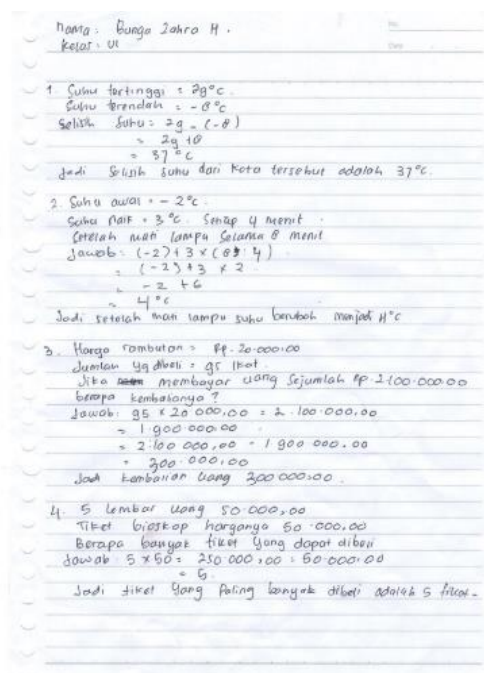 Nama : Bunga Zahra H.
Kelas : VI
1. Suhu tertinggi = 29°C
Suhu terendah = -8°C
Selisih Suhu = 29 - (-8)
= 29 + 8
= 37°C
Jadi Selisih suhu dari Kota tersebut adalah 37°C.
2. Suhu awal = -2°C.
Suhu naik = 3°C. Setiap 4 menit.
Setelah mati lampu Selama 8 menit
Jawab : (-2) + 3 × (8 : 4)
= (-2) + 3 × 2
= -2 + 6
= 4°C
Jadi setelah mati lampu suhu berubah menjadi 4°C
3. Harga rambutan = Rp. 20.000,00
Jumlah yg dibeli = 95 Ikat.
Jika membayar uang Sejumlah Rp 2.100.000.00
berapa kembalianya ?
Jawab : 95 × 20 000,00 = 2.100.000,00
= 1.900 000.00
= 2.100 000,00 - 1 900 000.00
= 200.000,00
Jadi kembalian uang 200 000,00.
4. 5 lembar uang 50.000,00
Tiket bioskop harganya 50.000,00
Berapa banyak tiket yang dapat dibeli
Jawab : 5 × 50 = 250 000,00 : 50.000.00
= 5.
Jadi tiket Yang Paling banyak dibeli adalah 5 tiket.